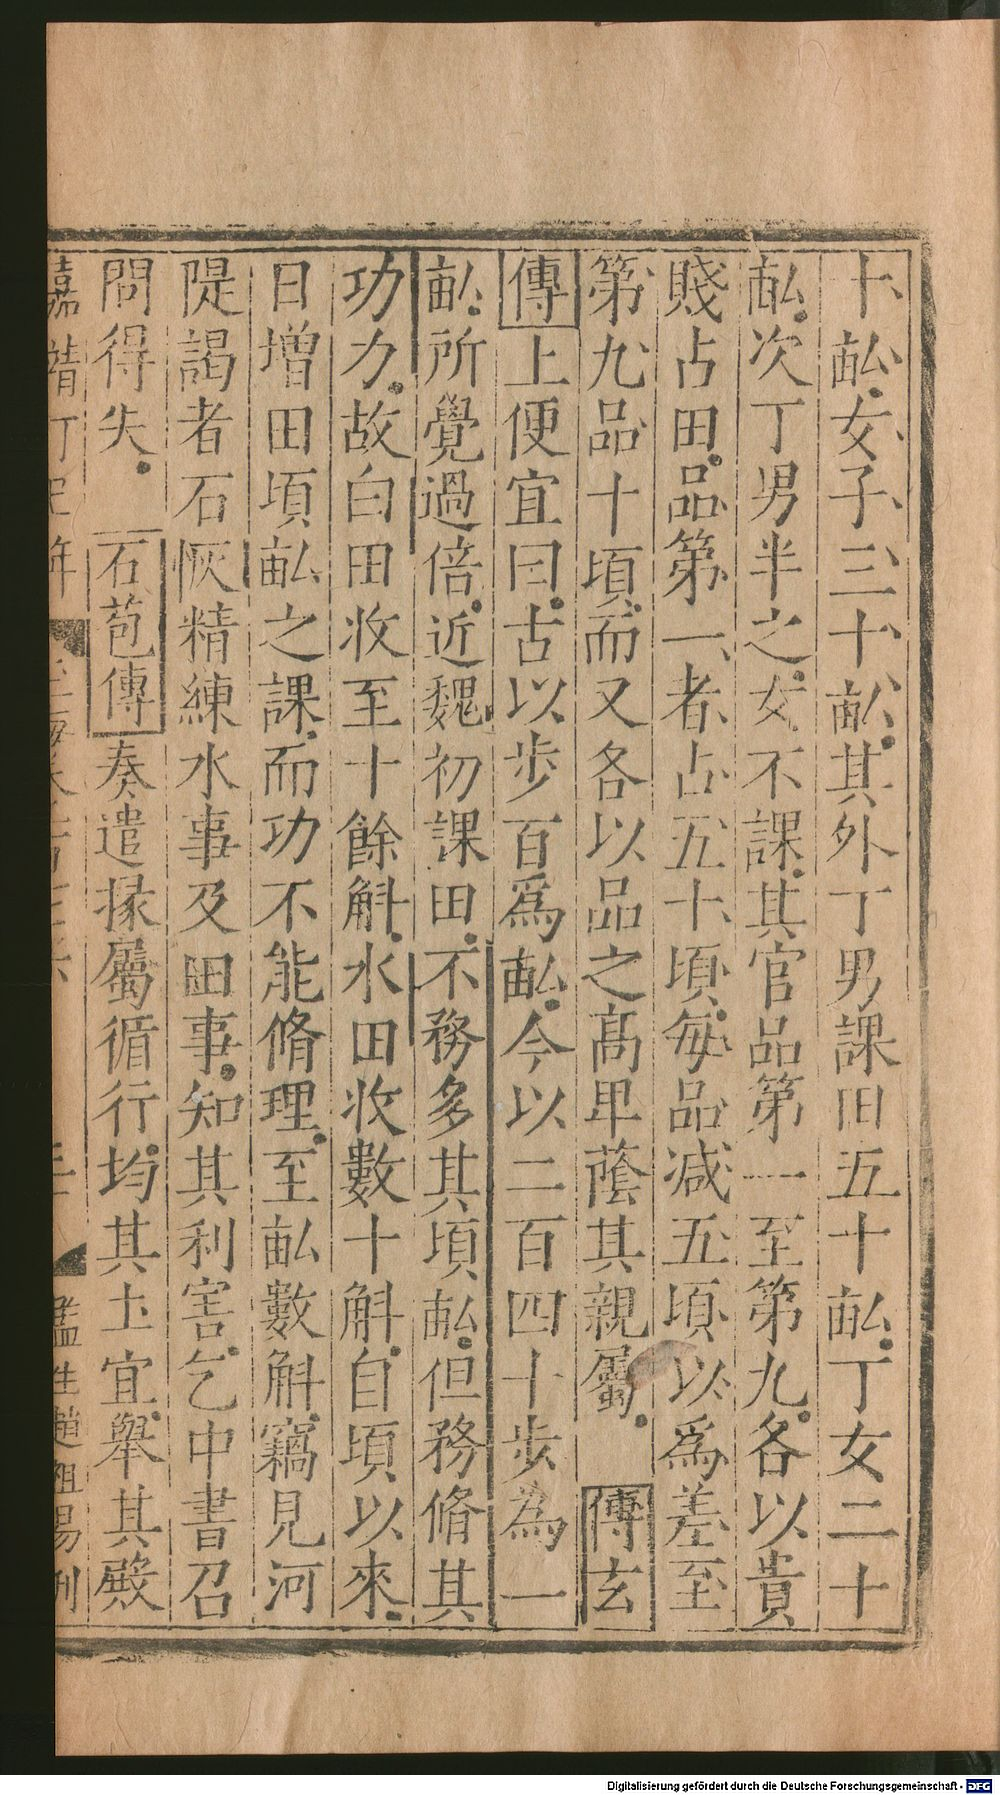 十畝女子三十畝其外丁男課田五十畝丁女二十
畝次丁男半之女不課其官品第一至第九各以貴
賤占田品第一者占五十頃每品減五頃以爲差至
第九品十頃而又各以品之髙卑蔭其親屬 傅玄
傳上便宜曰古以步百爲畝今以二百四十步為一
畝所覺過倍近魏初課田不務多其頃畝但務脩其
功力故白田收至十餘斛水田收數十斛自頃以來
日增田頃畝之課而功不能脩理至畝數斛竊見河
隄謁者石恢精練水事及田事知其利害乞中書召
問得失 石苞傳奏遣掾屬循行均其土宜舉其殿
嘉靖丁巳年
監生趙祖易刊
Digitalisierung gefördert durch die Deutsche Forschungsgemeinschaft - DFG